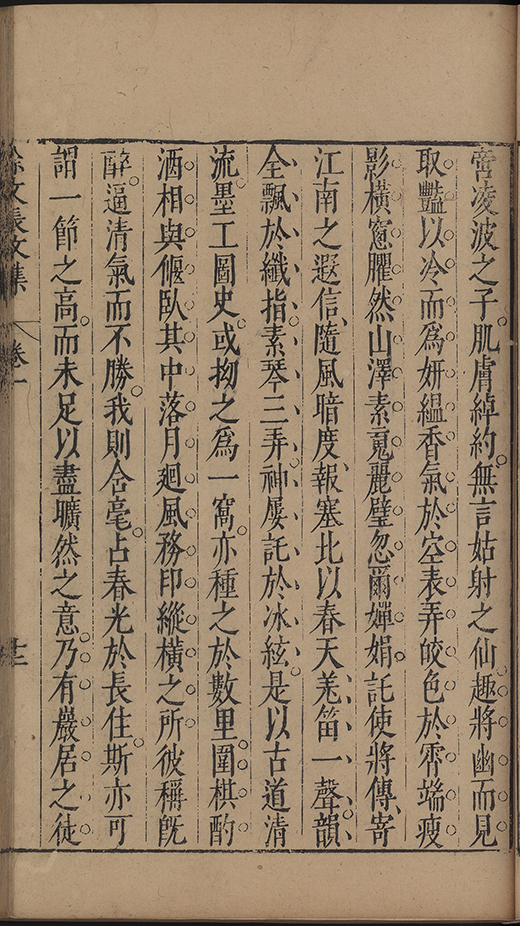 凌波之子肌膚綽約無言姑射之仙趣將幽而見
取豔以冷而爲妍緼香氣於空表弄皎色於霄端瘦
影橫窻臞然山澤素䰟麗璧忽爾嬋娟託使將傳寄
江南之遐信隨風暗度報塞北以春天羗笛一聲韻
全飄於纖指素琴三弄神屢託於冰絃是以古道清
流墨工圖史或拗之爲一窩亦種之於數里圍棋酌
酒相與偃臥其中落月廻風務印縱橫之所彼稱旣
醉逼清氣而不勝我則含毫占春光於長住斯亦可
謂一節之高而未足以盡曠然之意乃有巖居之徒
徐文長文集 卷一 十二